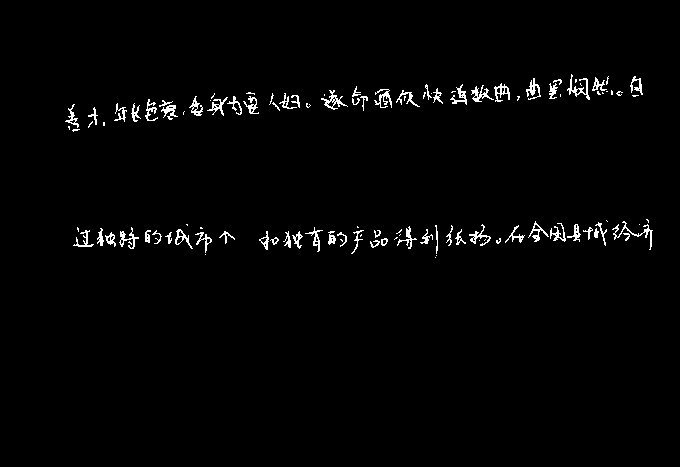 善才,年长色衰,委身为贾人妇。遂命酒使快弹数曲,曲罢悯然。自
过独特的城市个 和独有的产品得到张扬。在全国县域经济